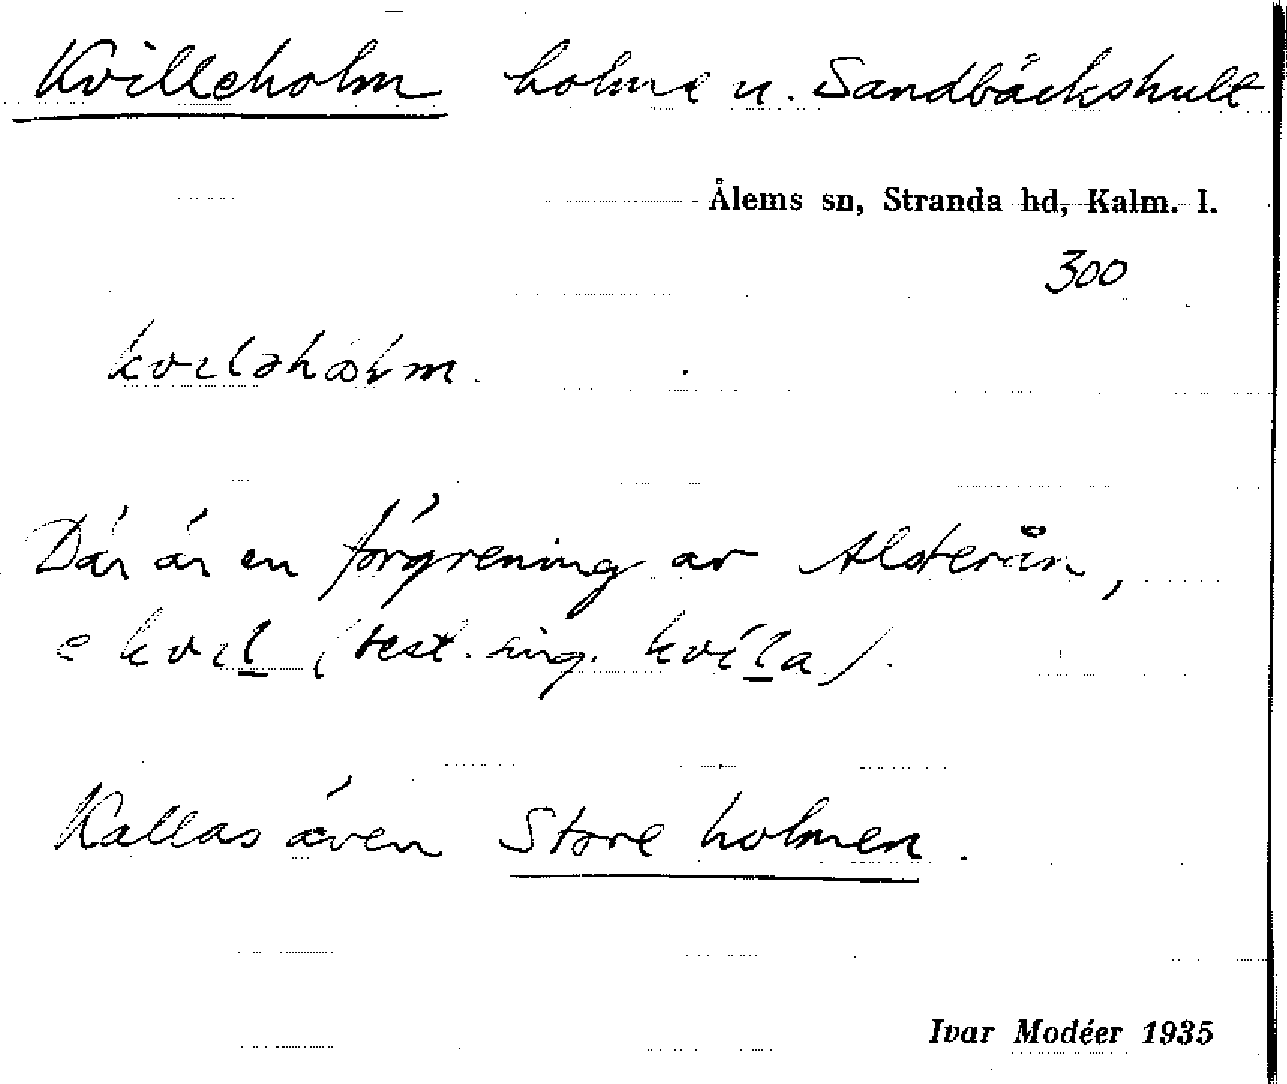 Kvilleholm holme u. Sandbäckshult
Ålems sn, Stranda hd, Kalm. l.
300
kvıləhålm.
Där är en förgrening av Alsterån,
e kvıl (best. sing. kvíla).
Kallas även Store holmen.
Ivar Modéer 1935